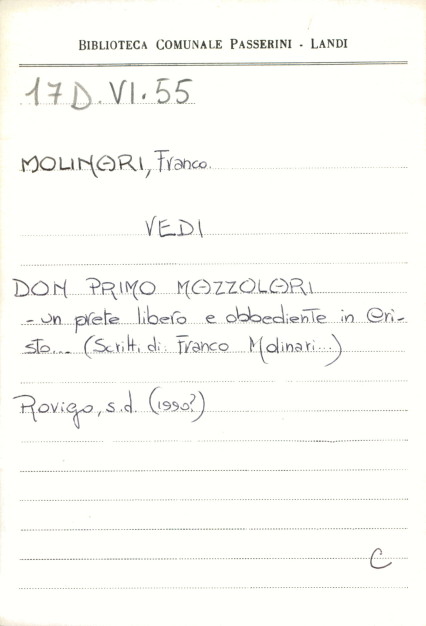 BIBLIOTECA COMUNALE PASSERINI - LANDI
17D.VI.55
MOLINARI, Franco.
VEDI
DON PRIMO MAZZOLARI
- un prete libero e obbediente in Cri-
sto... (Scritti di: Franco Molinari...)
Rovigo, s.d. (1990?)
C